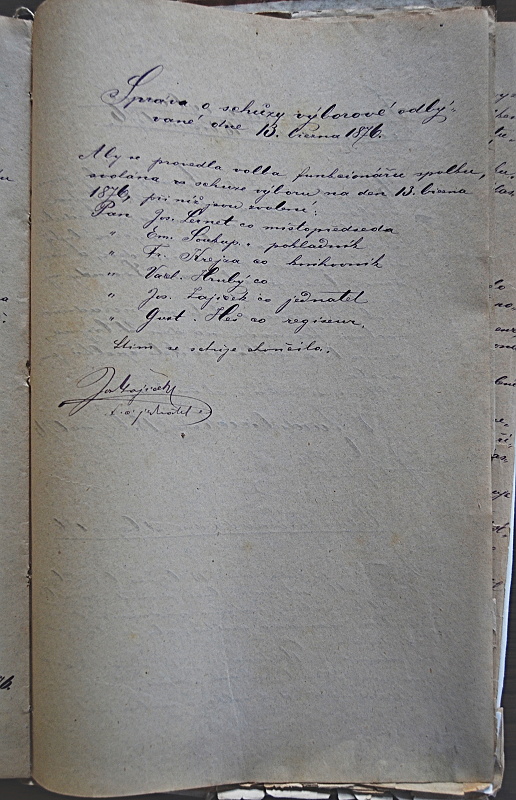 Správa o schůzy výborové odbý-
vané dne 13. března 1876.
Aby se provedla volba funkcionářů spolku,
svolána schůze výboru na den 13. března
1876, při níž jsou zvoleni:
Pan Jos. co místopředseda
" Em. Soukup " pokladník
" Fr. Krejza co knihovník
" Václ. Hrubý co
" Jos. Zajíček co jednatel
" Gust. Heš co regiseur.
Ulim se schůze skončila.
Jos Zajíček
t. č. jednatel